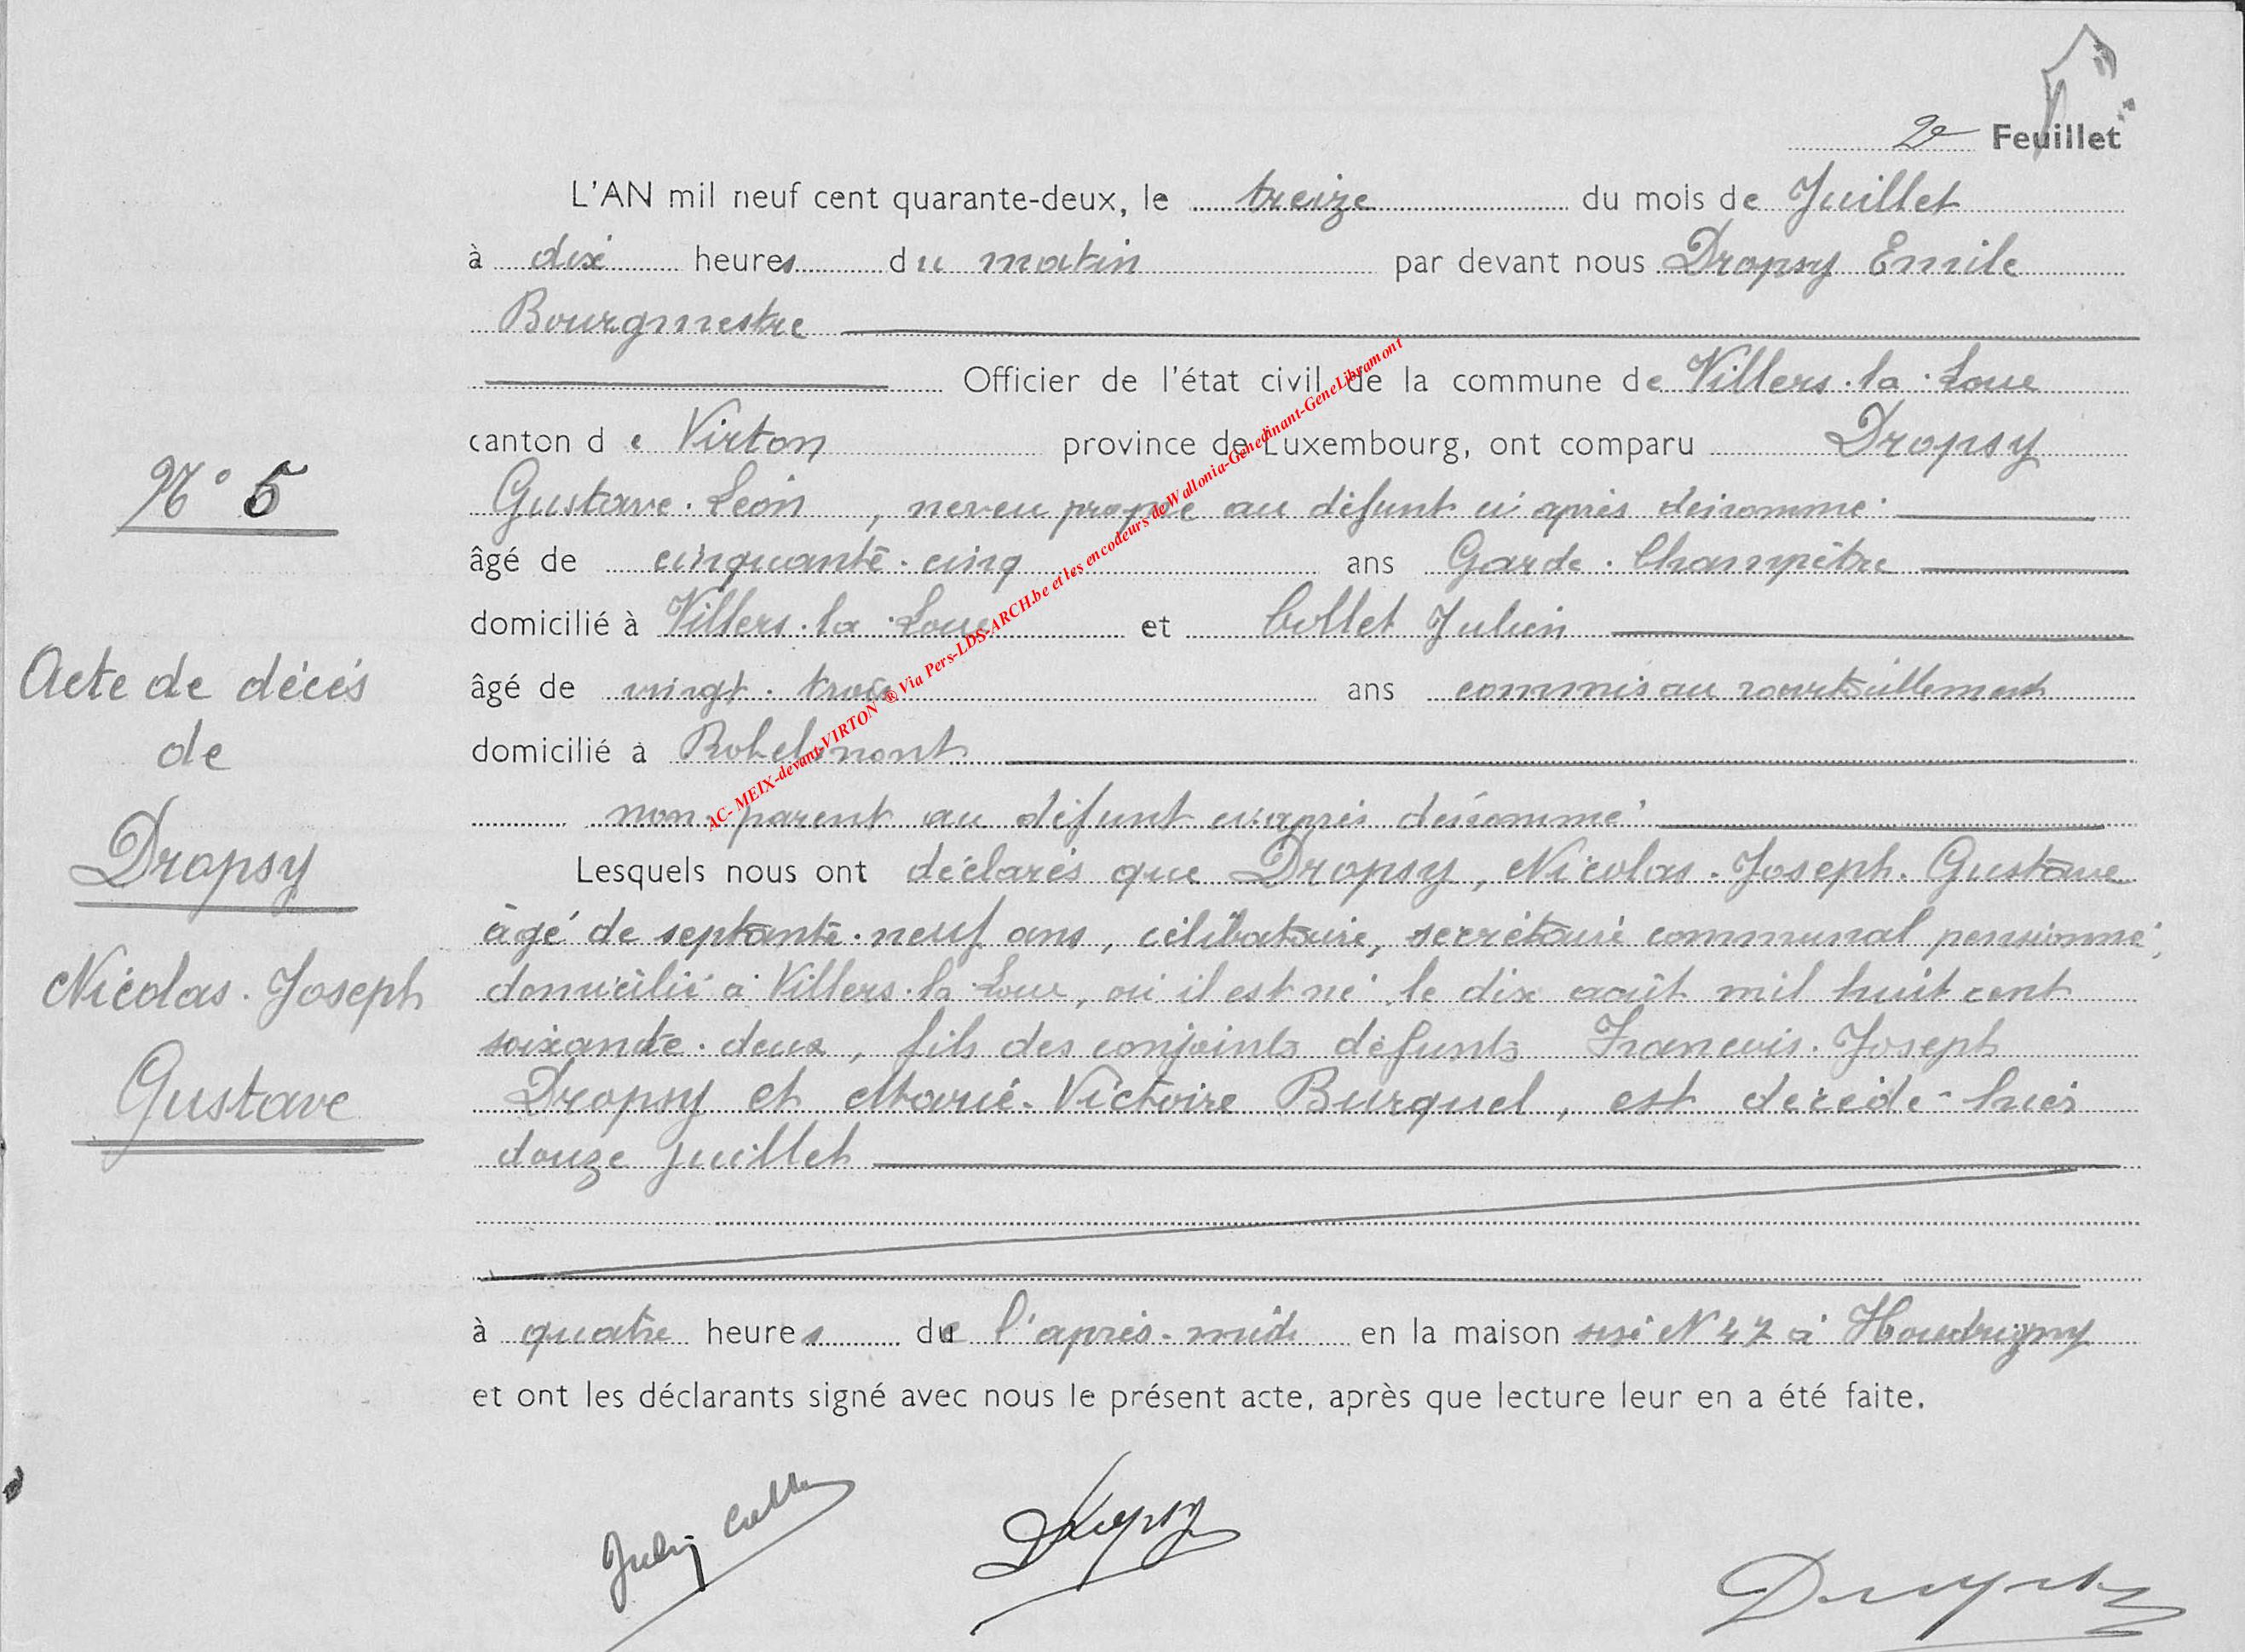 2e Feuillet
L'AN mil neuf cent quarante-deux, le treize du mois de Juillet
à dix heures du matin par devant nous Dropsy Emile
Bourgmestre
Officier de l'état civil de la commune de Villers-la-Loue
canton de Virton province de Luxembourg, ont comparu Dropsy
N° 5
Gustave-Léon, neveu propre au défunt ci après dénommé
âgé de cinquante-cinq ans Garde-Champêtre
domicilié à Villers-la-Loue et Collet Julien
Acte de décès
âgé de vingt-trois ans commis au ravitaillement
de
domicilié à Robelmont
non parent au défunt ci-après dénommé
Dropsy
Lesquels nous ont déclarés que Dropsy, Nicolas-Joseph-Gustave
âgé de septante-neuf ans, célibataire, secrétaire communal pensionné,
Nicolas-Joseph
domicilié à Villers-la-Loue, où il est né le dix août mil huit cent
soixante-deux, fils des conjoints défunts Francois-Joseph
Gustave
Dropsy et Marie-Victoire Burquel, est décédé hier
douze juillet
à quatre heures de l'après-midi en la maison sise N 47 à Houdrigny
et ont les déclarants signé avec nous le présent acte, après que lecture leur en a été faite.
Julien Collet
Dropsy
Dropsy
AC- MEIX-devant-VIRTON ® Via Pers-LDS-ARCH.be et les encodeurs de Wallonia-Genedinant-GeneLibramont